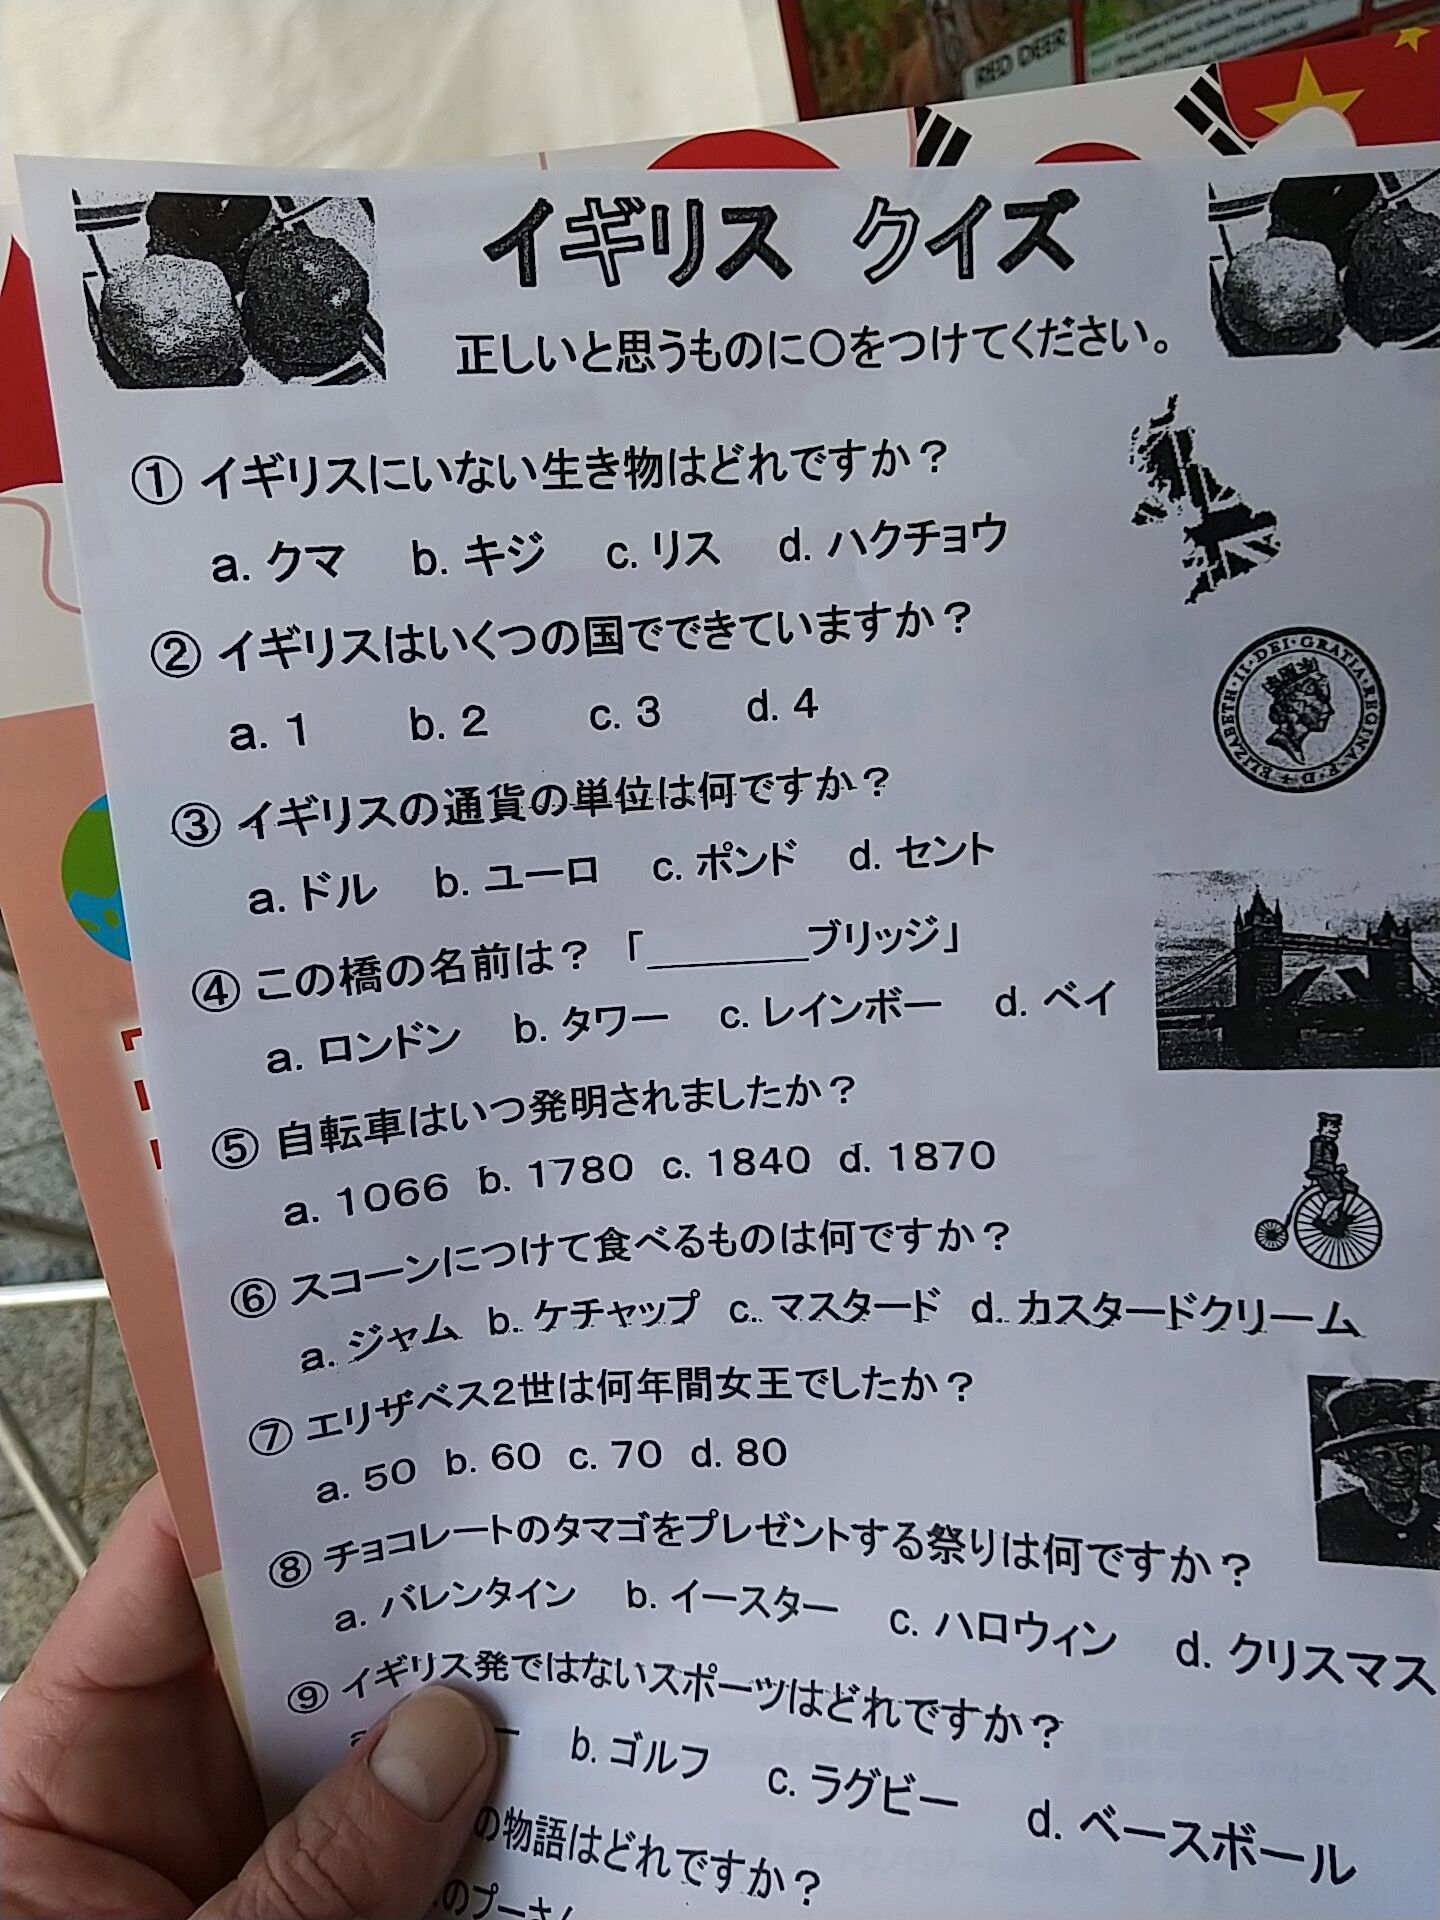 RED DEER
イギリス クイズ
正しいと思うものに〇をつけてください。
① イギリスにいない生き物はどれですか？
a. クマ b. キジ c. リス d. ハクチョウ
② イギリスはいくつの国でできていますか？
a. 1 b. 2 c. 3 d. 4
ELIZABETH・II・DEI・GRATIA・REGINA・F・D
③ イギリスの通貨の単位は何ですか？
a. ドル b. ユーロ c. ポンド d. セント
④ この橋の名前は？ 「＿＿＿＿ブリッジ」
a. ロンドン b. タワー c. レインボー d. ベイ
⑤ 自転車はいつ発明されましたか？
a. 1066 b. 1780 c. 1840 d. 1870
⑥ スコーンにつけて食べるものは何ですか？
a. ジャム b. ケチャップ c. マスタード d. カスタードクリーム
⑦ エリザベス2世は何年間女王でしたか？
a. 50 b. 60 c. 70 d. 80
⑧ チョコレートのタマゴをプレゼントする祭りは何ですか？
a. バレンタイン b. イースター c. ハロウィン d. クリスマス
⑨ イギリス発ではないスポーツはどれですか？
b. ゴルフ c. ラグビー d. ベースボール
の物語はどれですか？
のプーさん